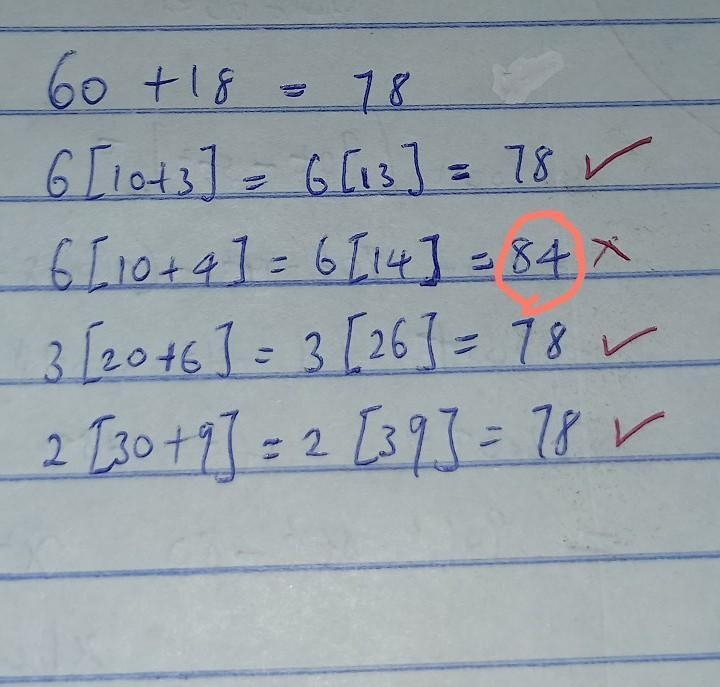 60 + 18 = 78
6[10+3] = 6[13] = 78 ✓
6[10+4] = 6[14] = 84 ✗
3[20+6] = 3[26] = 78 ✓
2[30+9] = 2[39] = 78 ✓